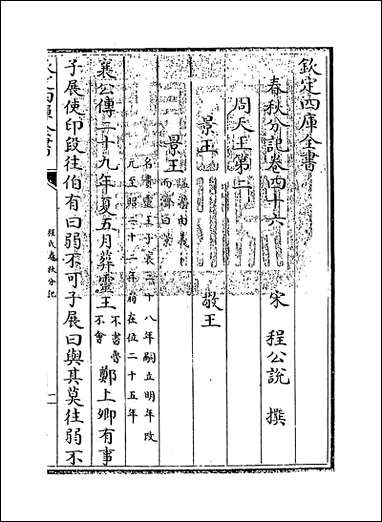 欽定四庫全書
春秋分記卷四十六
宋 程公說 撰
周天王第二
景王 敬王
景王
名貴靈王子襄二十八年嗣立明年改
元至昭二十二年崩在位二十五年
襄公傳二十九年夏五月葬靈王不書魯不會鄭上卿有事
子展使印段往伯有曰弱不可子展曰與其莫往弱不
程氏春秋分記